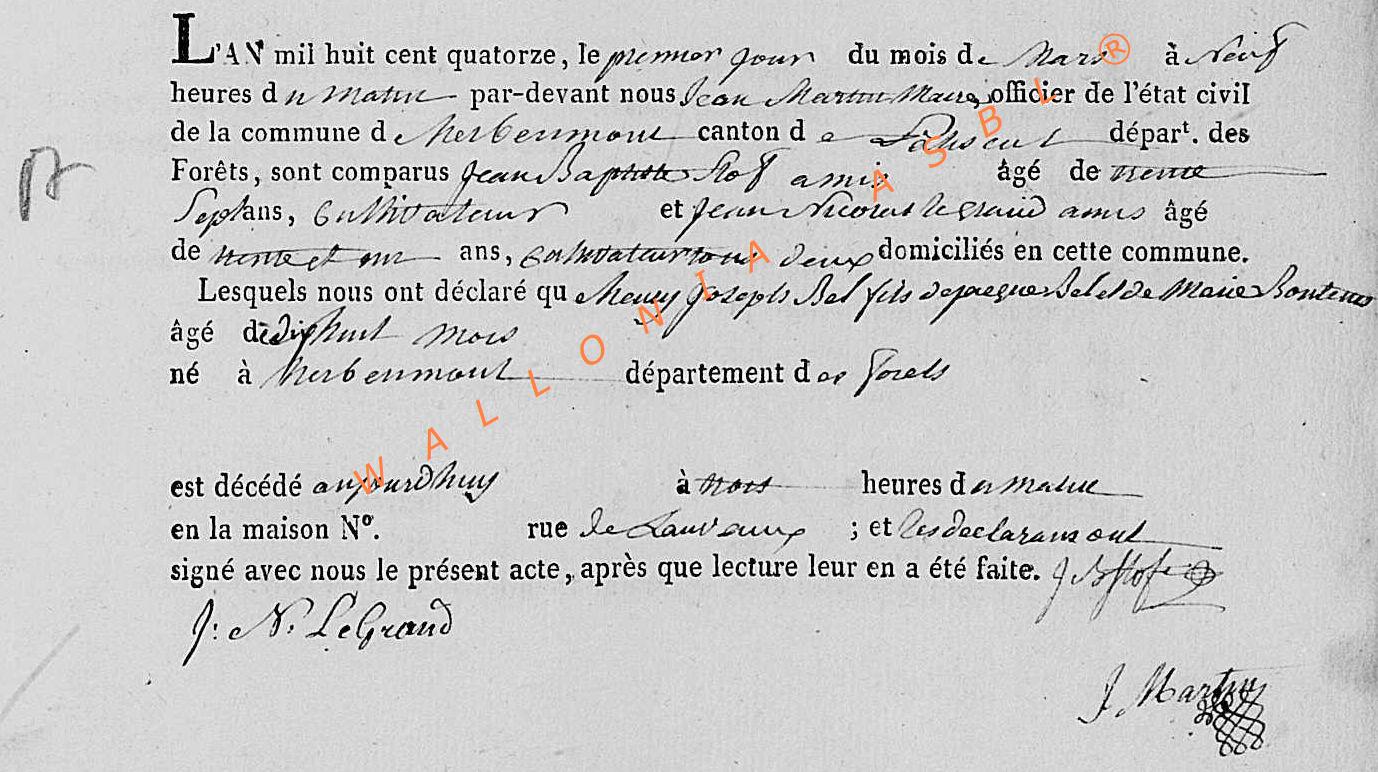 L'AN mil huit cent quatorze, le premier jour du mois de Mars à Neuf
heures du matin par-devant nous Jean Martin Maire officier de l'état civil
de la commune d'herbeumont canton de Paliseul départ. des
Forêts, sont comparus Jean Baptiste Stof amis âgé de trente
Sept ans, Cultivateur et Jean Nicolas legrand amis âgé
de trente et un ans, cultivateur tous deux domiciliés en cette commune.
Lesquels nous ont déclaré que henry Joseph Bel fils de jacque Bel et de Marie Bontems
âgé de dix huit mois
né à herbeumont département des forets
est décédé aujourdhuy à trois heures du matin
en la maison N°. rue de Lauvaux ; et les declarans ont
signé avec nous le présent acte, après que lecture leur en a été faite. J B Stof
J: N. LeGrand
J. Martin
WALLONIA ASBL ®